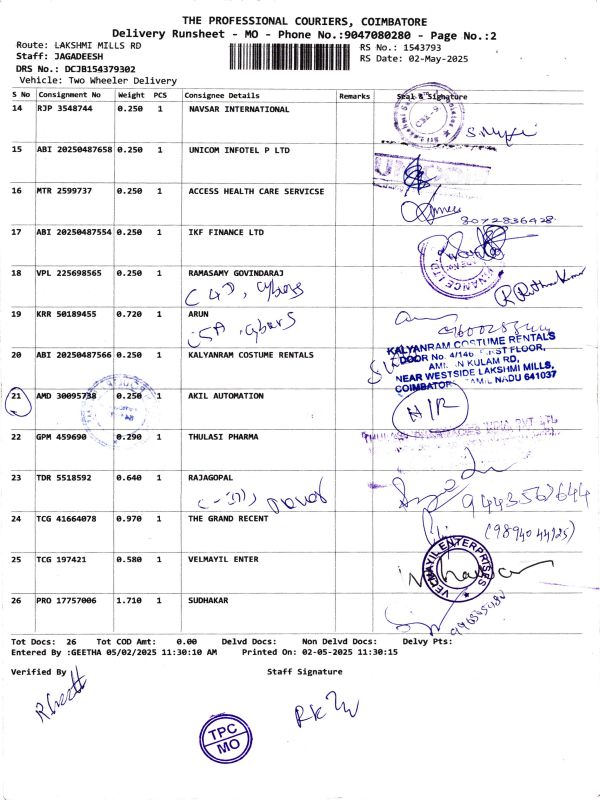 THE PROFESSIONAL COURIERS, COIMBATORE
Delivery Runsheet - MO - Phone No.:9047080280 - Page No.:2
Route: LAKSHMI MILLS RD
Staff: JAGADEESH
DRS No.: DCJB154379302
Vehicle: Two Wheeler Delivery
RS No.: 1543793
RS Date: 02-May-2025
S No Consignment No Weight PCS Consignee Details Remarks Seal & Signature
14 RJP 3548744 0.250 1 NAVSAR INTERNATIONAL
15 ABI 20250487658 0.250 1 UNICOM INFOTEL P LTD
16 MTR 2599737 0.250 1 ACCESS HEALTH CARE SERVICSE
8072836428
17 ABI 20250487554 0.250 1 IKF FINANCE LTD
FINANCE LTD
18 VPL 225698565 0.250 1 RAMASAMY GOVINDARAJ
19 KRR 50189455 0.720 1 ARUN
20 ABI 20250487566 0.250 1 KALYANRAM COSTUME RENTALS
KALYANRAM COSTUME RENTALS
DOOR No. 4/146 FIRST FLOOR,
AMMAN KULAM RD,
NEAR WESTSIDE LAKSHMI MILLS,
COIMBATORE TAMIL NADU 641037
21 AMD 30095738 0.250 1 AKIL AUTOMATION
22 GPM 459690 0.290 1 THULASI PHARMA
23 TDR 5518592 0.640 1 RAJAGOPAL
9443562644
24 TCG 41664078 0.970 1 THE GRAND RECENT
(9894044925)
25 TCG 197421 0.580 1 VELMAYIL ENTER
VELMAYIL ENTERPRISES
26 PRO 17757006 1.710 1 SUDHAKAR
Tot Docs: 26 Tot COD Amt: 0.00 Delvd Docs: Non Delvd Docs: Delvy Pts:
Entered By :GEETHA 05/02/2025 11:30:10 AM Printed On: 02-05-2025 11:30:15
Verified By Staff Signature
TPC
MO